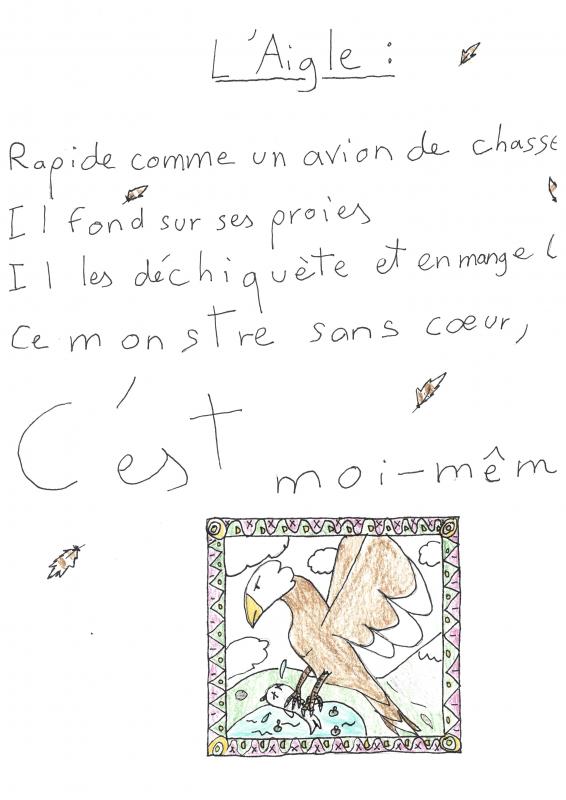 L'Aigle :
Rapide comme un avion de chasse
Il fond sur ses proies
Il les déchiquète et en mange
Ce monstre sans cœur,
C'est moi-mêm